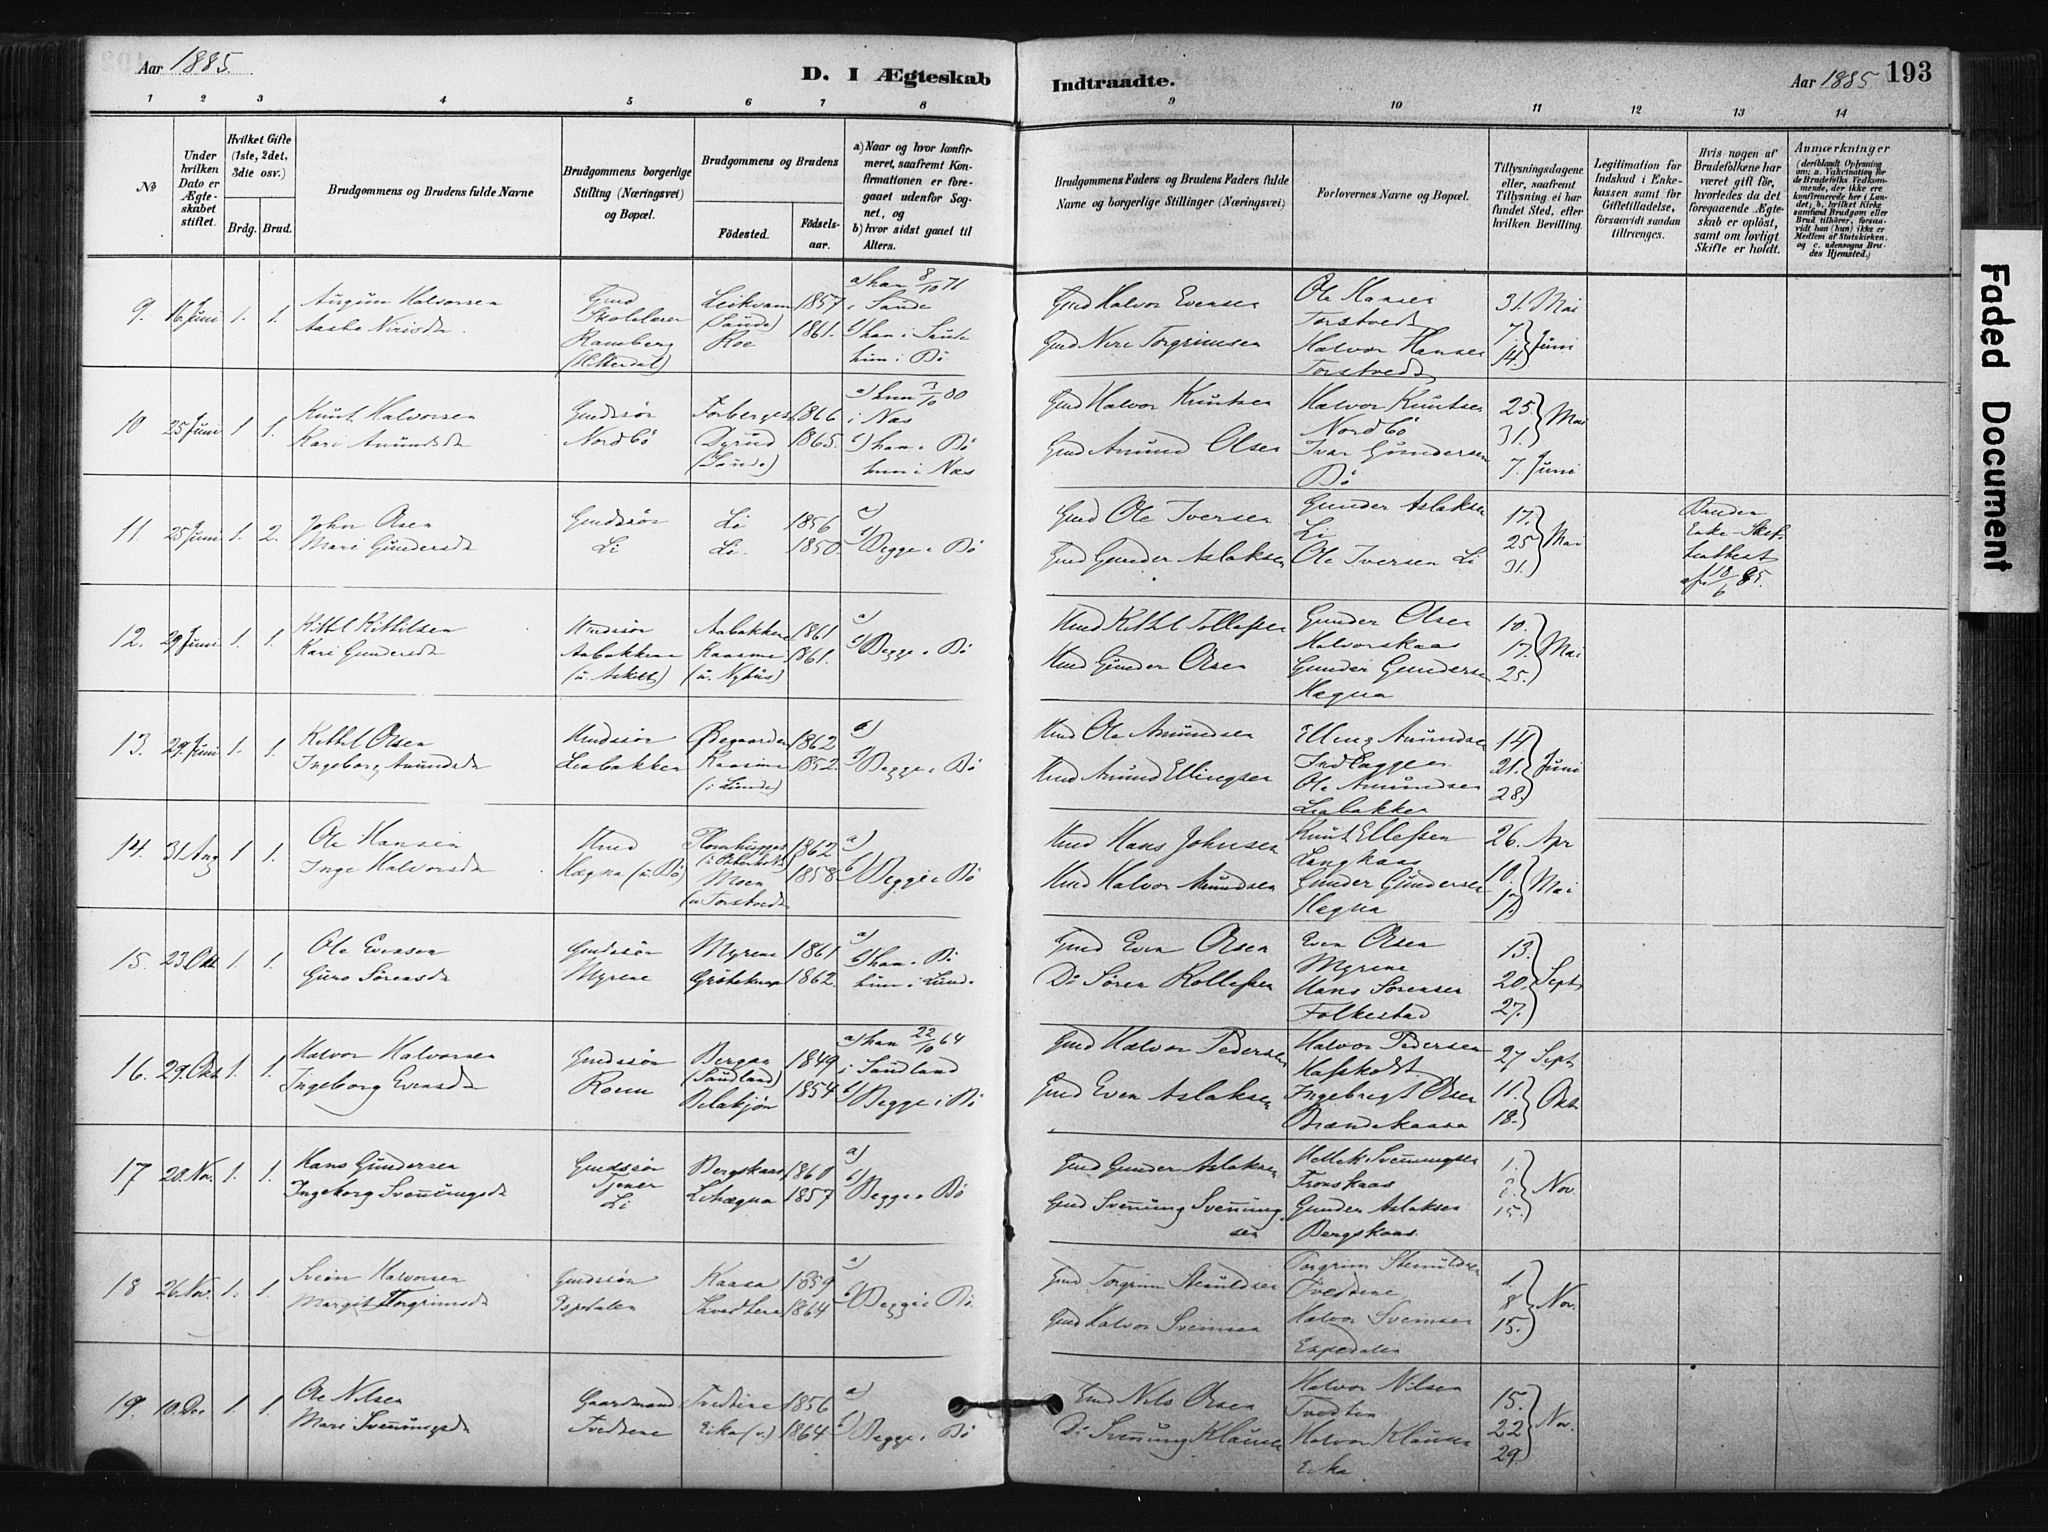 Aar 1885.
D. I Ægteskab
Indtraadte.
Aar 1885
193
1 2 3 4 5 6 7 8
9 10 11 12 13 14
No
Under hvilken Dato er Ægteskabet stiftet.
Hvilket Gifte (1ste, 2det, 3die osv.)
Brdg. Brud.
Brudgommens og Brudens fulde Navne
Brudgommens borgerlige Stilling (Næringsvei) og Bopæl.
Brudgommens og Brudens
Födested.
Födsels-aar.
a) Naar og hvor konfirmeret, saafremt Konfirmationen er foregaaet udenfor Sognet, og
b) hvor sidst gaaet til Alters.
Brudgommens Faders og Brudens Faders fulde Navne og borgerlige Stillinger (Næringsvei)
Forlovernes Navne og Bopæl.
Tillysningsdagene eller, saafremt Tillysning ei har fundet Sted, efter hvilken Bevilling.
Legitimation for Indskud i Enkekassen samt for Giftetilladelse, forsaavidt saadan tiltrænges.
Hvis nogen af Brudefolkene har været gift för, hvorledes da det foregaaende Ægteskab er oplöst, samt om lovligt Skifte er holdt.
Anmærkninger
(deriblandt Oplysning om: a. Vaccination for de Brudefolks Vedkommende, der ikke ere konfirmerede her i Landet; b. hvilket Kirkesamfund Brudgom eller Brud tilhörer, forsaavidt han (hun) ikke er Medlem af Statskirken, og c. udensogns Brudes Hjemsted.)
9. 16 Juni 1. 1. Halvorsen Aasbe Nirisd. Gmd Skolelærer Ramberg (Hitterdal) Leikvam (Saude) Roe 1857 1861. a) han 8/10 71 i Saude b) han i Saude hun i Bö
Gmd Halvor Evensen Gmd Niri Torgrimsen Ole Hansen Torstvedt Halvor Hansen Torstvedt 31. Mai 7. 14. Juni
10 25 Juni 1 1. Knut Halvorsen Kari Anundsd. Gmdssön Nordbö Dyrud (Saude) 1866 1865. a) hun 3/10 80 i Næs b) han i Bö hun i Næs
Gmd Halvor Knutsen Gmd Anund Olsen Halvor Knutsen Nordbö Ivar Gundersen Bö 25. 31. Mai 7. Juni
11. 25 Juni 1. 2. John Olsen Mari Gundersd. Gmdssön Li Li Li. 1856 1850. a) b) Begge i Bö
Gmd Ole Iversen Gmd Gunder Aslaksen Gunder Aslaksen Li Ole Iversen Li 17. 25 31. Mai Bruden Enke Skif- af 18/6 85.
12. 29 Juni 1. 1. Kittil Kittilsen Kari Gundersd. Hmdssön Aabakken (u. Askilt) Aabakken Kaasene (u. Nyhus) 1861 1861. a) b) Begge i Bö
Hmd Kittil Tollefsen Hmd Gunder Olsen Gunder Olsen Halvorskaas Gunder Gundersen Hegna 10. 17. 25. Mai
13. 29. Juni 1. 1. Kittil Olsen Ingeborg Anundsd. Hmdssön Leabakken Ödegaarden Kaasene (i Lunde) 1862 1852. a) b) Begge i Bö
Hmd Ole Anundsen Hmd Anund Ellingsen Elling Anundsen Indlæggen Ole Anundsen Leabakken 14 21. 28. Juni
14. 31 Aug 1 1. Ole Hansen Inge Halvorsd. Hmd Hægna (u. Bö) Moen (u Torstvedt) 1862 1858 a) b) Begge i Bö
Hmd Hans Johnsen Hmd Halvor Anundsen Knut Ellefsen Langkaas Gunder Gundersen Hegna 26. Apr 10. 17. Mai
15. 23 Okt 1. 1. Ole Evensen Guro Sörensd. Gmdssön Myrene Myrene 1861 1862. a) b) han i Bö hun i Lunde
Gmd Even Olsen Do Sören Rollefsen Even Olsen Myrene Hans Sörensen Folkestad 13. 20. 27. Sept.
16. 29. Okt. 1. 1. Halvor Halvorsen Ingeborg Evensd. Gmdssön Roenn Bergan (Sandland) 1849 1854 a) han 22/10 64 i Sandland b) Begge i Bö
Gmd Halvor Pedersen Gmd Even Aslaksen Halvor Pedersen Ingebregt Olsen Brændekaasa 27 Sept 11. 18. Okt
17 20. Nov. 1. 1. Hans Gundersen Ingeborg Svenningsd. Gmdssön Tjener Li Bergskaas Lihægna 1860 1857 a) b) Begge i Bö
Gmd Gunder Aslaksen Gmd Svenning Svenningsen Hellek Svenningsen Gunder Aslaksen Bergskaas 1. 8. 15. Nov.
18 26. Nov. 1. 1. Svein Halvorsen Margit Torgrimsd. Gmdssön Espedalen Kaasa Tvedtene 1859 1864 a) b) Begge i Bö
Gmd Torgrim Gmd Halvor Svensen Torgrim Tvedtene Halvor Svensen Espedalen 1 8 15. Nov.
19. 10. Dec 1. 1. Ole Nilsen Mari Svenningsd. Gaardmand Tvedtene Tvedtene Eika (v.) 1856 1864 a) b) Begge i Bö
Gmd Nils Olsen Do Svenning Klausen Halvor Nilsen Tvedten Halvor Klausen Eika 15. 22 29. Nov.
Faded Document